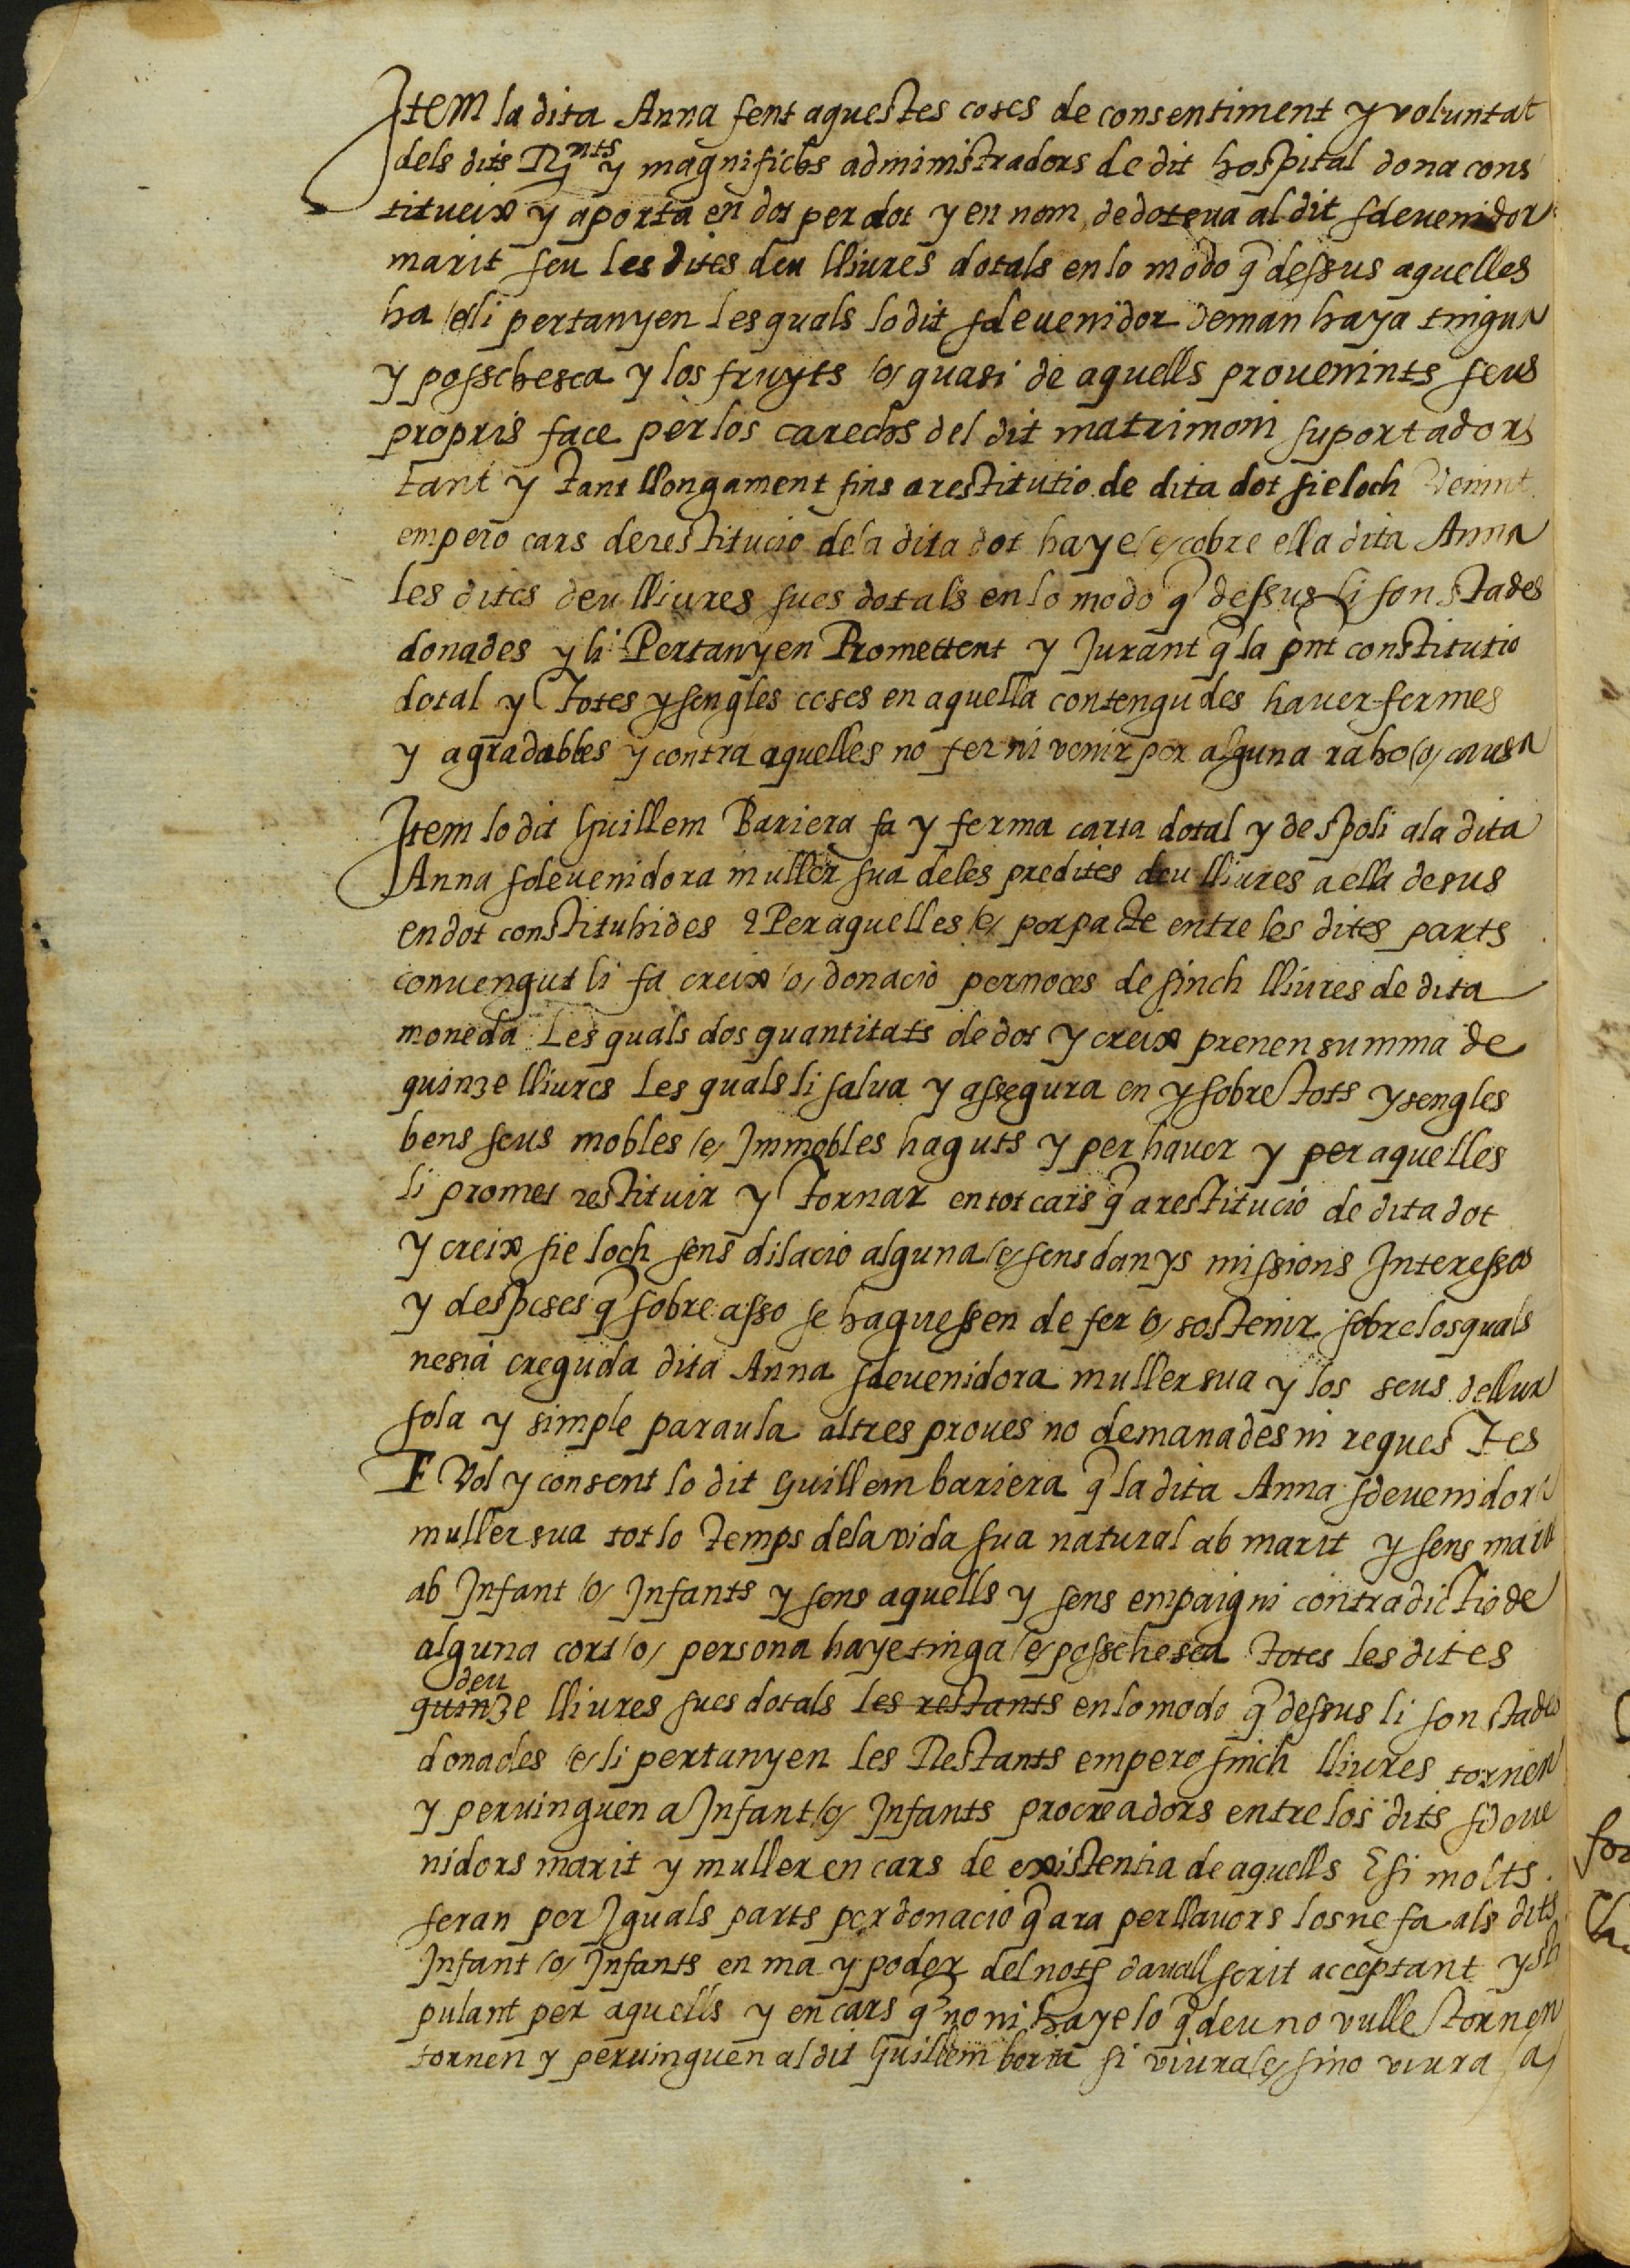 Item la dita Anna fent aquestes coses de consentiment y voluntat
dels dits Rnts y magnifichs administradors de dit hospital dona cons
titueix y aporta en dot per dot y en nom de dot sua al dit sdevenidor
marit seu les dites deu lliures dotals en lo modo q̃ dessus aquelles
ha /e/ li pertanyen les quals lo dit sdevenidor deman haya tingua
y posschesca y los fruyts /o/ quasi de aquells provenints seus
propris face per los carechs del dit matrimoni suportadors
tant y tant llongament fins a restitutio de dita dot sie loch Venint
empero cars de restitucio de la dita dot haye /e/ cobre ella dita Anna
les dites deu lliures sues dotals en lo modo q̃ dessus li son stades
donades y li Pertanyen Promettent y Jurant q̃ la pnt constitutio
dotal y totes y sengles coses en aquella contengudes haver fermes
y agradables y contra aquelles no fer ni venir per alguna raho /o/ causa
Item lo dit Guillem Bariera fa y ferma carta dotal y de spoli a la dita
Anna sdevenidora muller sua de les predites deu lliures a ella desus
en dot constituhides e Per aquelles /e/ per pacte entre les dites parts
convengut li fa creix /o/ donacio per noces de sinch lliures de dita
moneda Les quals dos quantitats de dot y creix prenen summa de
quinze lliures Les quals li salva y assegura en y sobre tots y sengles
bens seus mobles /e/ Immobles haguts y per haver y per aquelles
li promet restituir y tornar en tot cars q̃ a restitucio de dita dot
y creix sie loch sens dilacio alguna /e/ sens danys missions Interessos
y despeses q̃ sobre asso se haguessen de fer /o/ sostenir sobre los quals
ne sia creguda dita Anna sdevenidora muller sua y los seus de llur
sola y simple paraula altres proves no demanades ni requestes
E Vol y consent lo dit Guillem bariera q̃ la dita Anna sdevenidora
muller sua tot lo temps de la vida sua natural ab marit y sens marit
ab Infant /o/ Infants y sens aquells y sens empaig ni contradictio de
alguna cort /o/ persona haye tinga /e/ posschesca totes les dites
deu
quinze lliures sues dotals les restants en lo modo q̃ dessus li son stades
donades /e/ li pertanyen les Restants empero sinch lliures tornen
y pervinguen a Infant /o/ Infants procreadors entre los dits sdeve
nidors marit y muller en cars de existentia de aquells E si molts
seran per Iguals parts per donacio q̃ ara per llavors los ne fa als dits
Infant /o/ Infants en ma y poder del nots davall scrit acceptant y sti
pulant per aquells y en cars q̃ no ni haye lo q̃ deu no vulle tornen
tornen y pervinguen al dit Guillem si viura /e/ sino viura /a/